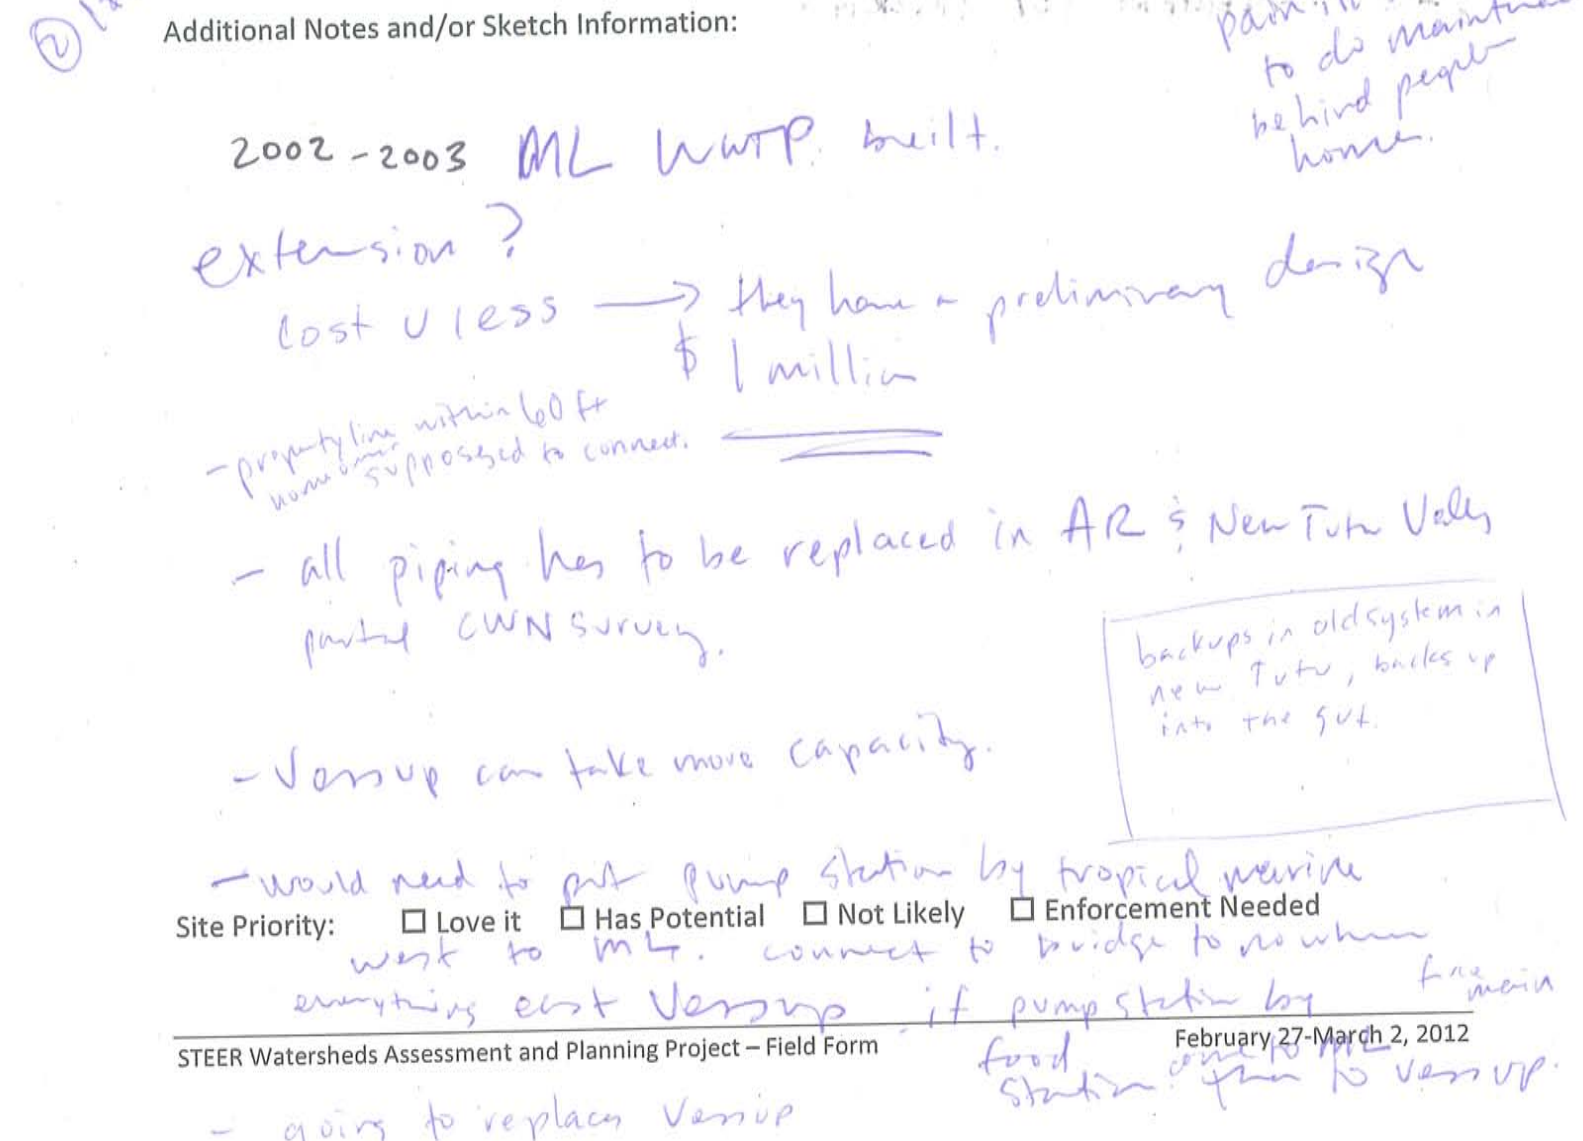 ②
Additional Notes and/or Sketch Information:
to do
behind
2002-2003 ML WWTP. built.
extension?
cost u less → they have a preliminary design
$ 1 million
- property line within 60 ft
supposed to connect.
- all piping has to be replaced in AR & New Tutu Valley
partial CWN survey.
backups in old system in
new Tutu, backs up
into the gut.
- Vessup can take more capacity.
- would need to put pump station by tropical marine
Site Priority: ☐ Love it ☐ Has Potential ☐ Not Likely ☐ Enforcement Needed
west to ML. connect to bridge to nowhere
everything east Vessup if pump station by
main
STEER Watersheds Assessment and Planning Project – Field Form
February 27-March 2, 2012
food
station to vessup.
- going to replace Vessup